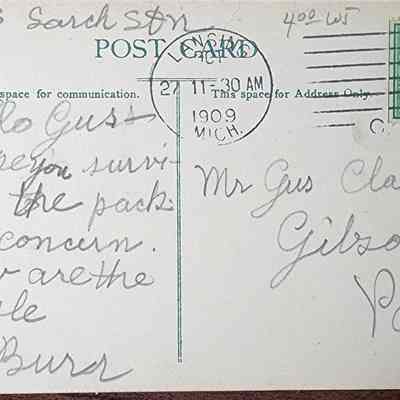 Sarch Stn
4 00 W5
POST CARD
LENSING
OCT
27 11-30 AM
1909
MICH.
space for communication.
This space for Address Only.
lo Gus-
pe you survi-
the pack.
concern.
are the
le
Burr
Mr Gus Cla
Gibso